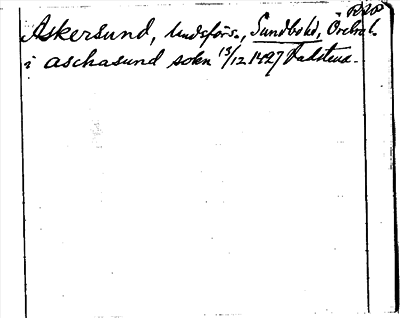 RAP
Askersund, landsförs., Sundbohd, Örebro l.
i aschasund sokn 13/12 1427 Vadstena.